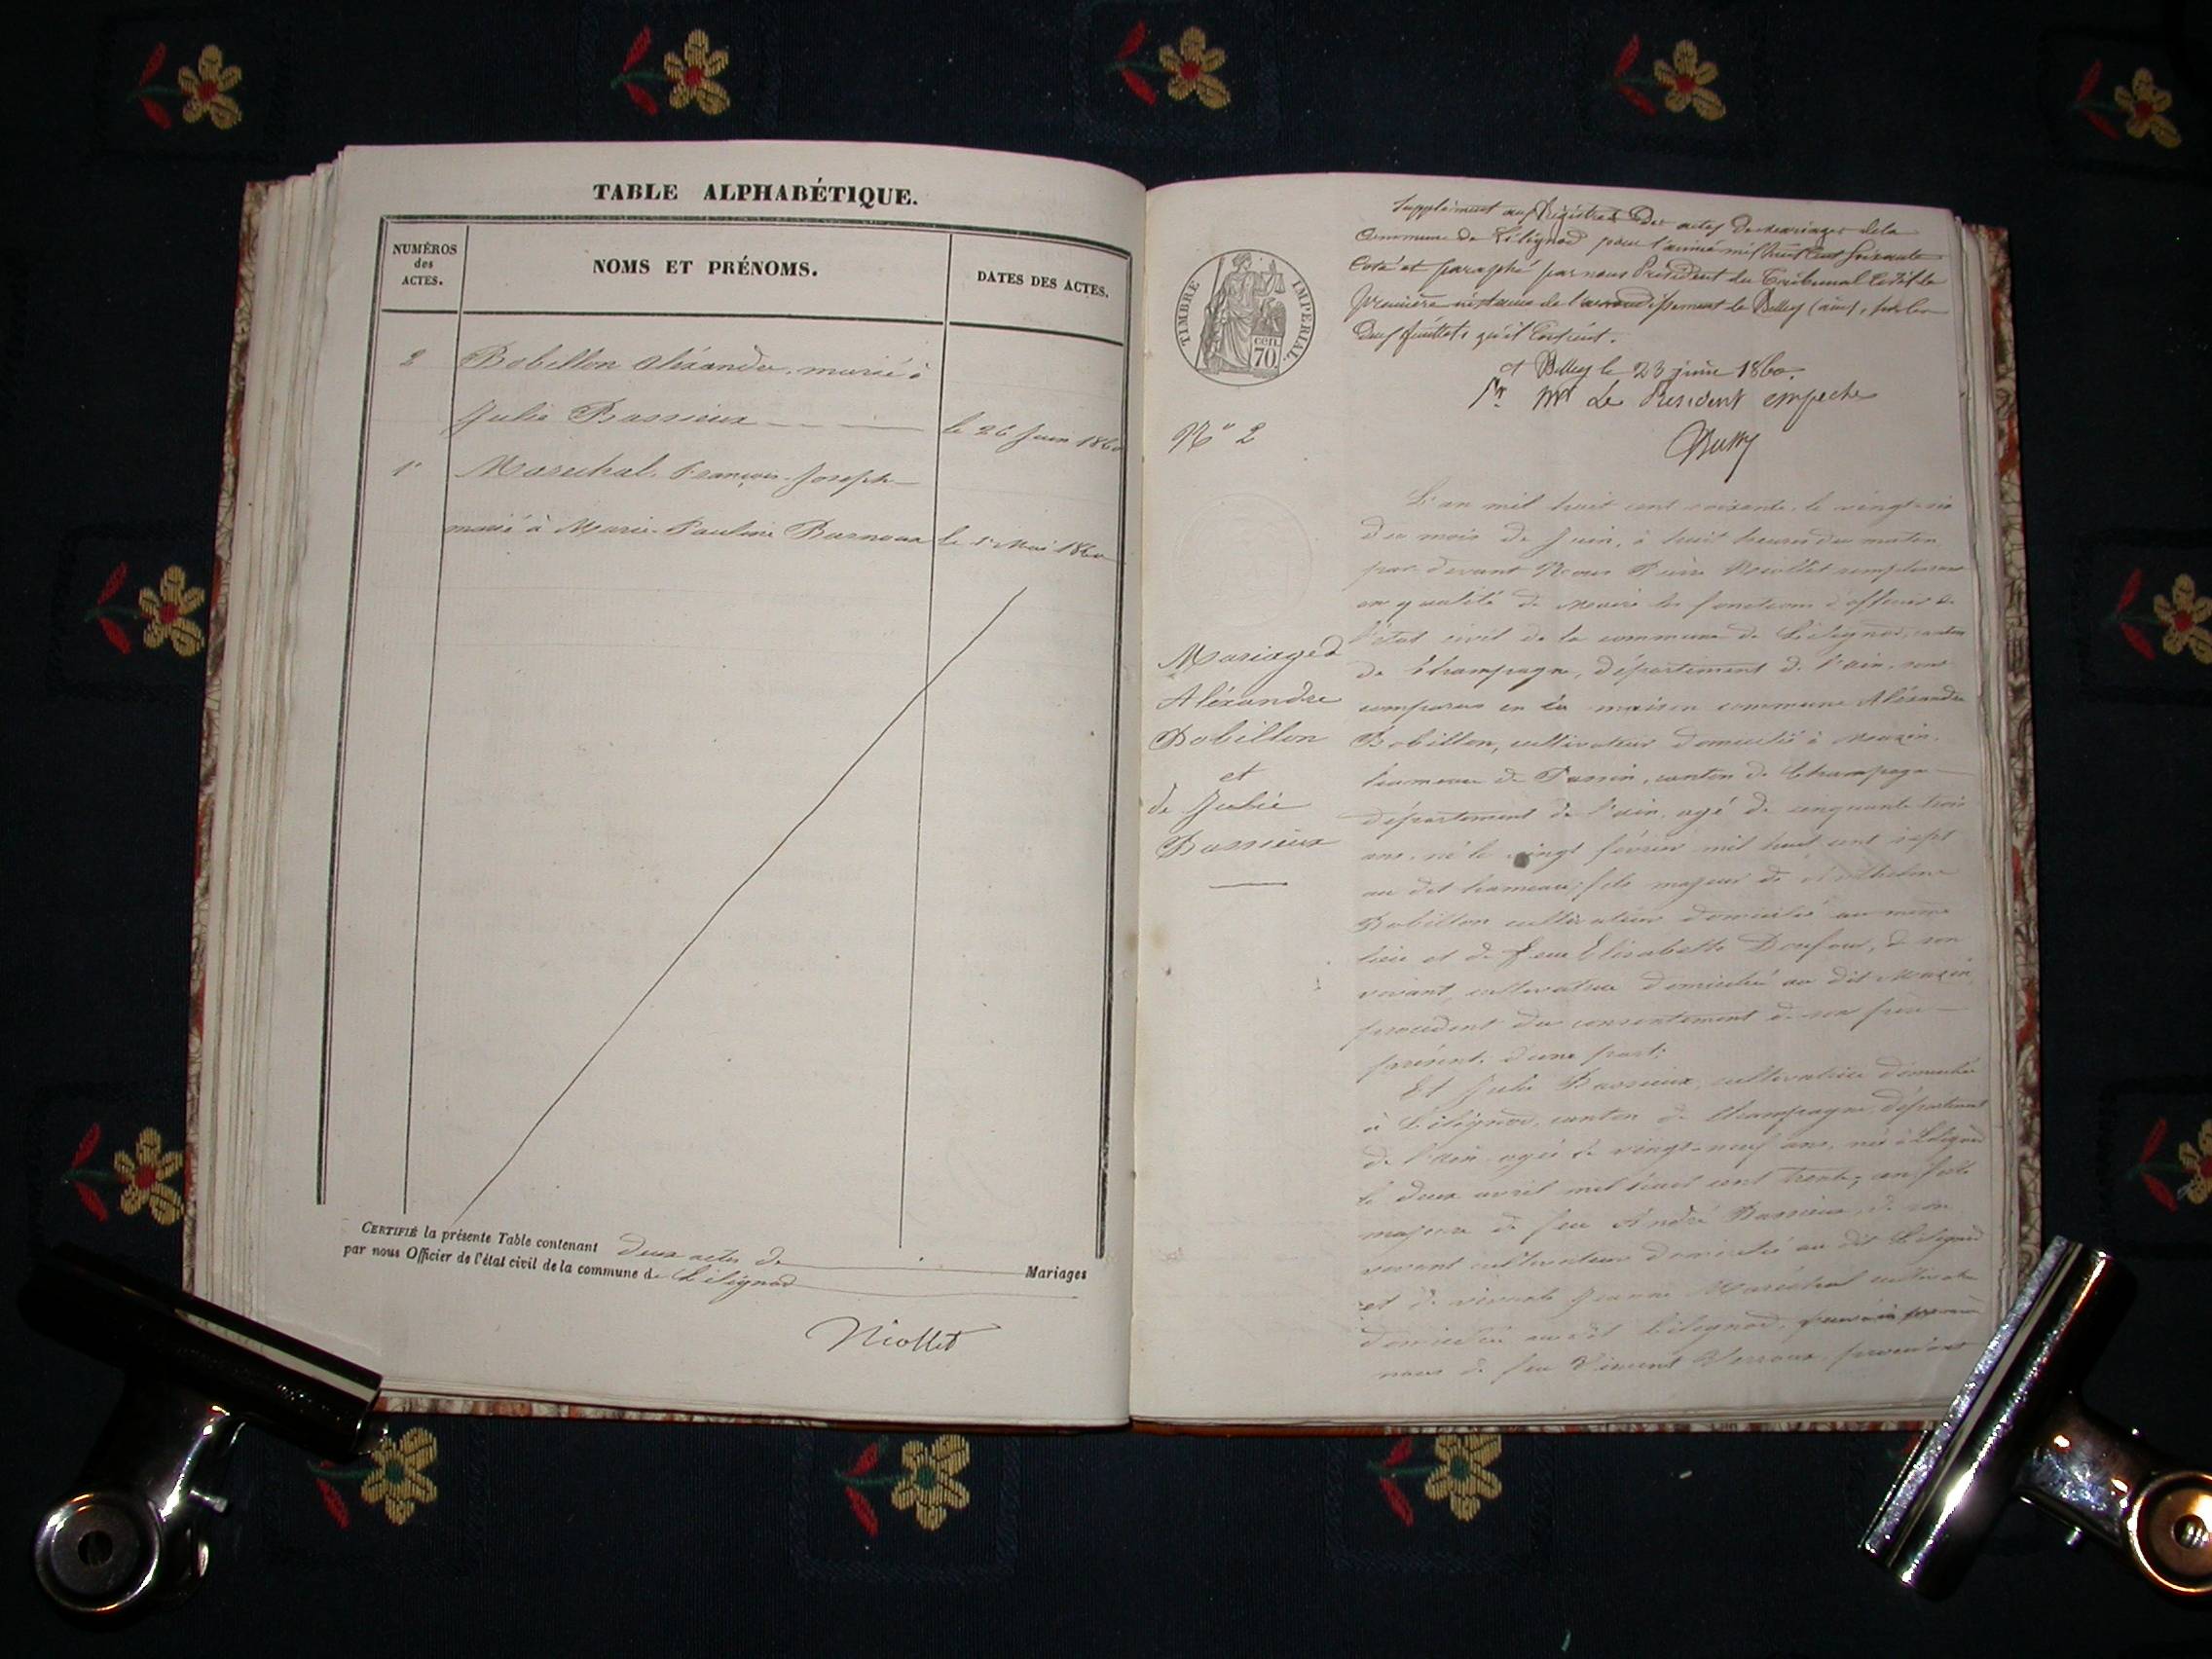 TABLE ALPHABÉTIQUE.
NUMÉROS
des
ACTES.
NOMS ET PRÉNOMS.
DATES DES ACTES.
2 Bobillon Aléxandre, marié à
Julie Bassieux le 26 Juin 1860
1er Maréchal, François-Joseph
marié à Marie-Pauline le 1er Mai 1860
CERTIFIÉ la présente Table contenant deux actes de Mariages
par nous Officier de l'état civil de la commune de Lilignod
Niollet
TIMBRE IMPÉRIAL.
cen.
70.
Supplément aux Registres des actes de mariages de la
Commune de Lilignod pour l'année mil huit cent soixante
Coté et paraphé par nous Président du Tribunal Civil de
première instance de l'arrondissement de Belley (ain), sur les
deux feuillets qu'il contient.
à Belley le 23 juin 1860.
Pr Mr Le Président empeché
N° 2
Mariage d
Aléxandre
Bobillon
et
de Julie
Bassieux
L'an mil huit cent soixante, le vingt-six
du mois de Juin, à huit heures du matin
par-devant Nous Niollet remplissant
en qualité de Maire les fonctions d'officier de
l'état civil de la commune de Lilignod, canton
de Champagne, département de l'ain, sont
comparus en la maison commune Aléxandre
Bobillon, cultivateur domicilié à
hameau de Passin, canton de Champagne
département de l'ain, agé de cinquante trois
ans, né le vingt février mil huit cent sept
au dit hameau; fils majeur de
Bobillon cultivateur domicilié au même
lieu et de feue Elisabeth Dufour, de son
vivant, cultivatrice domiciliée au dit
procédant du consentement de son père
présent, d'une part;
Et Julie Bassieux, cultivatrice domiciliée
à Lilignod, canton de Champagne, département
de l'ain agée de vingt-neuf ans, née à Lilignod
le deux avril mil huit cent trente-un fille
majeure de feu André Bassieux, de son
vivant cultivateur domicilié au dit Lilignod
et de vivante Jeanne Maréchal cultivatrice
domiciliée au dit Lilignod,
de feu Vincent procédant